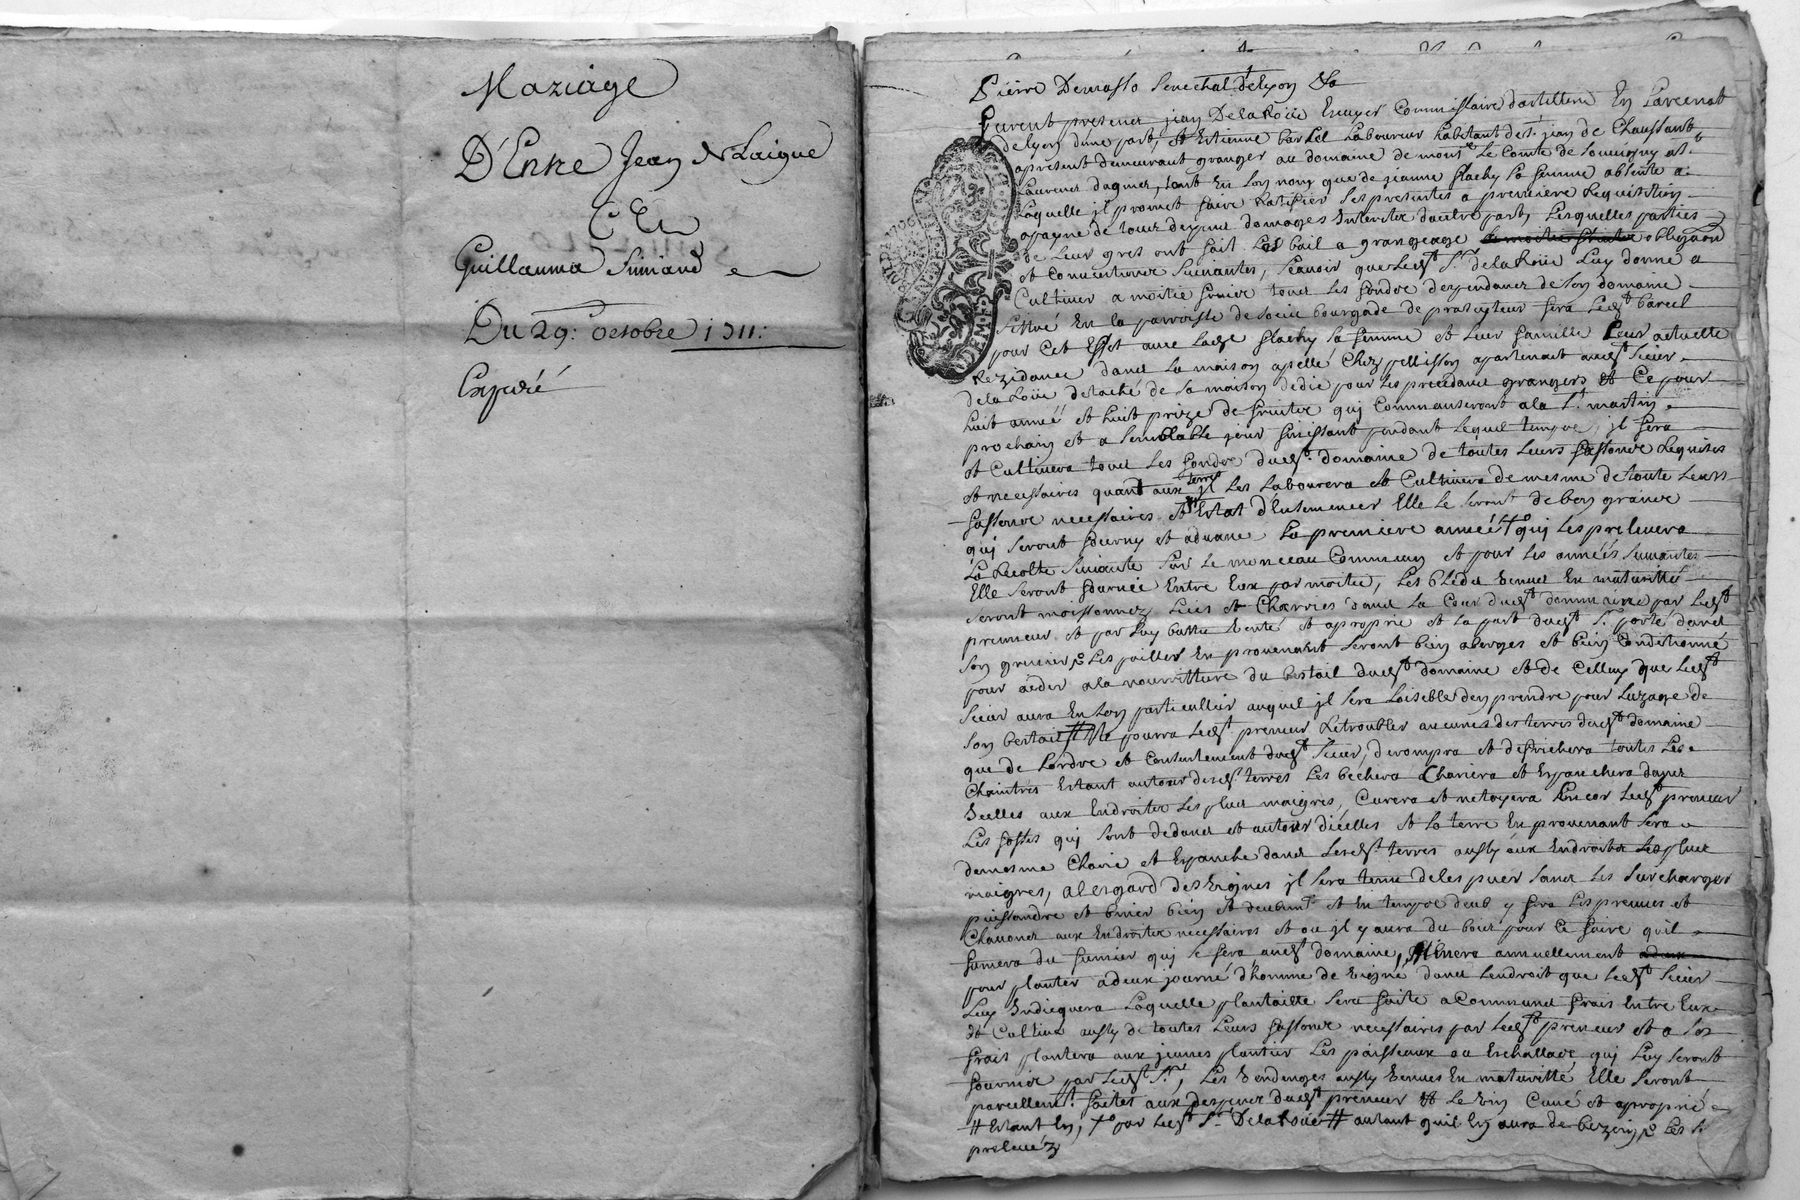 Mariage
D'Entre Jean
Et
Guillauma Simand
Du 29: octobre 1711:
Expedié
Pierre Demaslo Senechal delyon &a
Furent presener jean DelaRoüe Escuyer Commissaire dartillerie En Larcenat
delyon dune part, et Estienne barcel Laboureur habitant de st. jean de Chaussant
apresent demeurant granger au domaine de monsr. Le Comte de Souuigny at
Laurent dagniez, tant En son nom que de jeanne flachy sa femme absente a
Laquelle jl promet faire Ratiffier Ses presentes a premiere Requisition
apayne de touz despenz domages Interetz dautre part, Lesquelles parties
de Leur grez ont fait Led bail a grangeage obligaon
et Conuentionz Suiuantes, Scauoir que Ledt Sr. delaRoüe Luy donne a
Cultiuer a moitie fruiez touz Les fondz dependanz de son domaine
Sittué En la parroisse de bourgade de fera Ledt barcel
pour Cet Effet auec Lade flachy sa femme et Leur famille Leur actuelle
Rezidance danz La maison apellé Chez pellisson apartenant audt Sieur
delaRoüe detaché de sa maison pour les precedanz grangers Et Ce pour
huit année et huit prize de fruitz qui Commanseront ala St. martin
prochain et a Semblable jour finissant pendant Lequel tempz, jl fera
et Cultiuera touz Les fondz dudt. domaine de toutes Leurs fassonz Requises
et necessaires quant aux terres jl Les Labourera et Cultiuera de mesme de toute Leurs
fassonz necessaires et Estat d'Ensemencer Elle Le seront de bon grainz
qui seront fourny et aduanc La premiere année qui Les preleuera
La Recolte Suiuante Sur Le monceau Commun et pour les années Suiuantes
Elle Seront fournie Entre Eux par moitie, Les bledz Venuz En maturitté
Seront moissonnez Liés et Charriés danz La Cour dudt domaine par Ledt
preneur et par Luy battu Venté et aproprié et La part dudt Sr. porté danz
Son grenier Les pailles En prouenant Seront bien et bien Conditionné
pour aider ala nourritture du bestail dudt domaine et de Celluy que Ledt
Sieur aura En Son particullier auquel jl sera Loisible den prendre pour Luzage de
Son bestail Ne pourra Ledt preneur Retroubler aucunes des terres dudt domaine
que de Lordre et Consentement dudt Sieur, derompra et defrichera toutes Les
Chaintres Estant autour desd. terres Les bechera Chariera et Espanchera danz
Icelles aux Endroitz Les pluz maigres, Curera et netoyera Encor Ledt preneur
Les fosses qui sont dedanz et autour dicelles et La terre En prouenant Sera
demesme Charié et Espanche danz Lesdt. terres aussy aux Endroitz Les pluz
maigres, alesgard des Vignes jl Sera tenu deles puer Sanz Les Surcharger
et biner bien et deubmt et En tempz deub y fera Les preuues et
aux Endroitz necessaires et ou jl y aura du boiz pour Ce faire quil
fumera du fumier qui Se fera audt domaine, Minera annuellement
pour planter adeux journé d'homme de Vigne danz Lendroit que Ledt Sieur
Luy Indiequera Laquelle plantaitte Sera faite aCommunz fraiz Entre Eux
et Cultiué aussy de toutes Leurs fassonz necessaires par Ledt preneur et a Ses
fraiz plantera aux jeunes plantier Les paisseaux ou Eschallatz qui Luy Seront
fourniz par Ledt Sr., Les Vendanges aussy Venues En maturitté Elle Seront
pareillemt. faites aux despenz dudt preneur et Le Vin Cuué et aproprié
# Estant En, par Ledt Sr. DelaRoüe # autant quil En aura de bezoin, Les
preleuéz